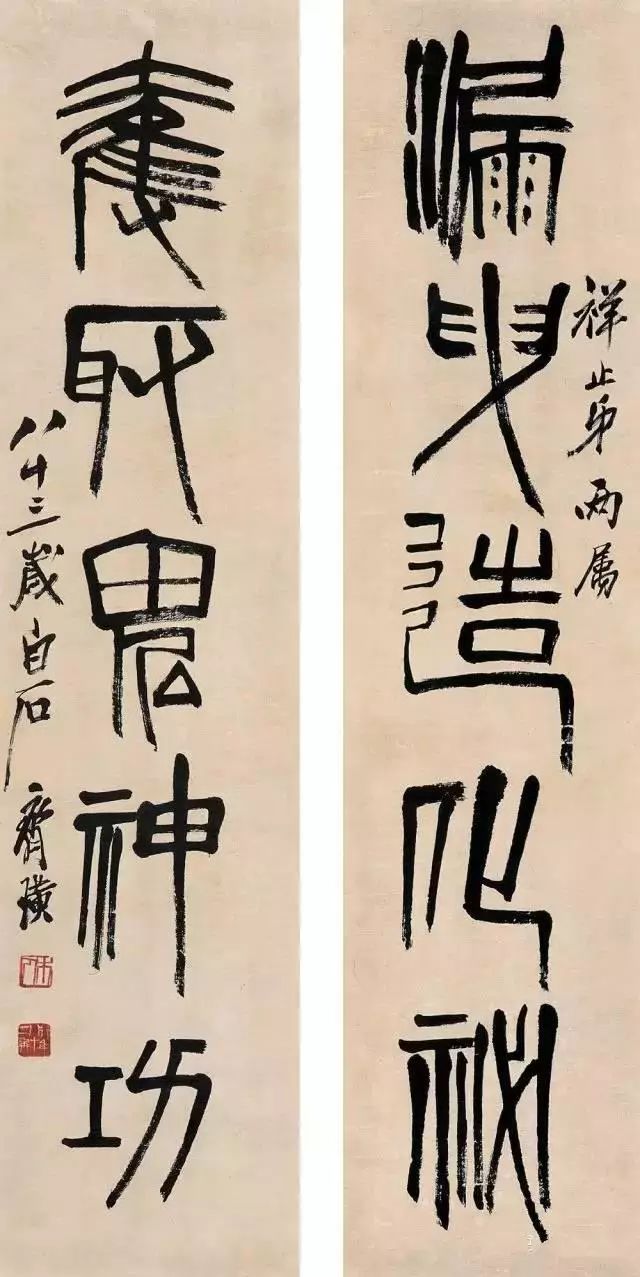 祥止弟两属
漏曳造化祕
奪取鬼神功
八十三歲白石齊璜